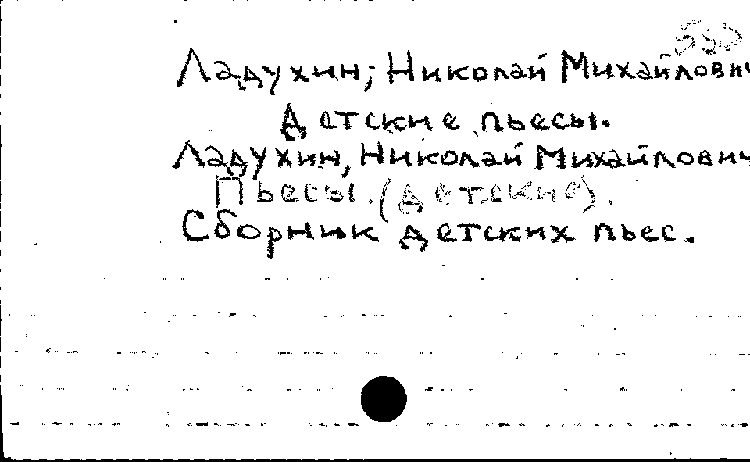 Ладухин, Николай Михайлович
Детские пьесы.
Ладухин, Николай Михайлович
Пьесы. (детские).
Сборник детских пьес.